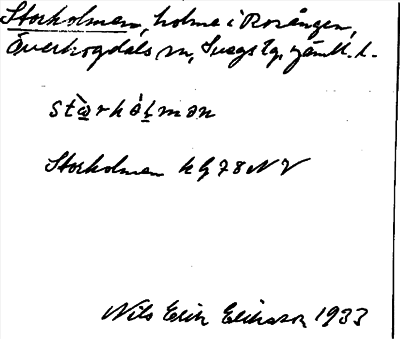 Storholmen, holme i Rosången,
Överhogdals sn, Svegs tg, Jämtl. l.
stὰrhὰlmən
Storholmen kg 78 NV
Nils Erik Eriksson 1933